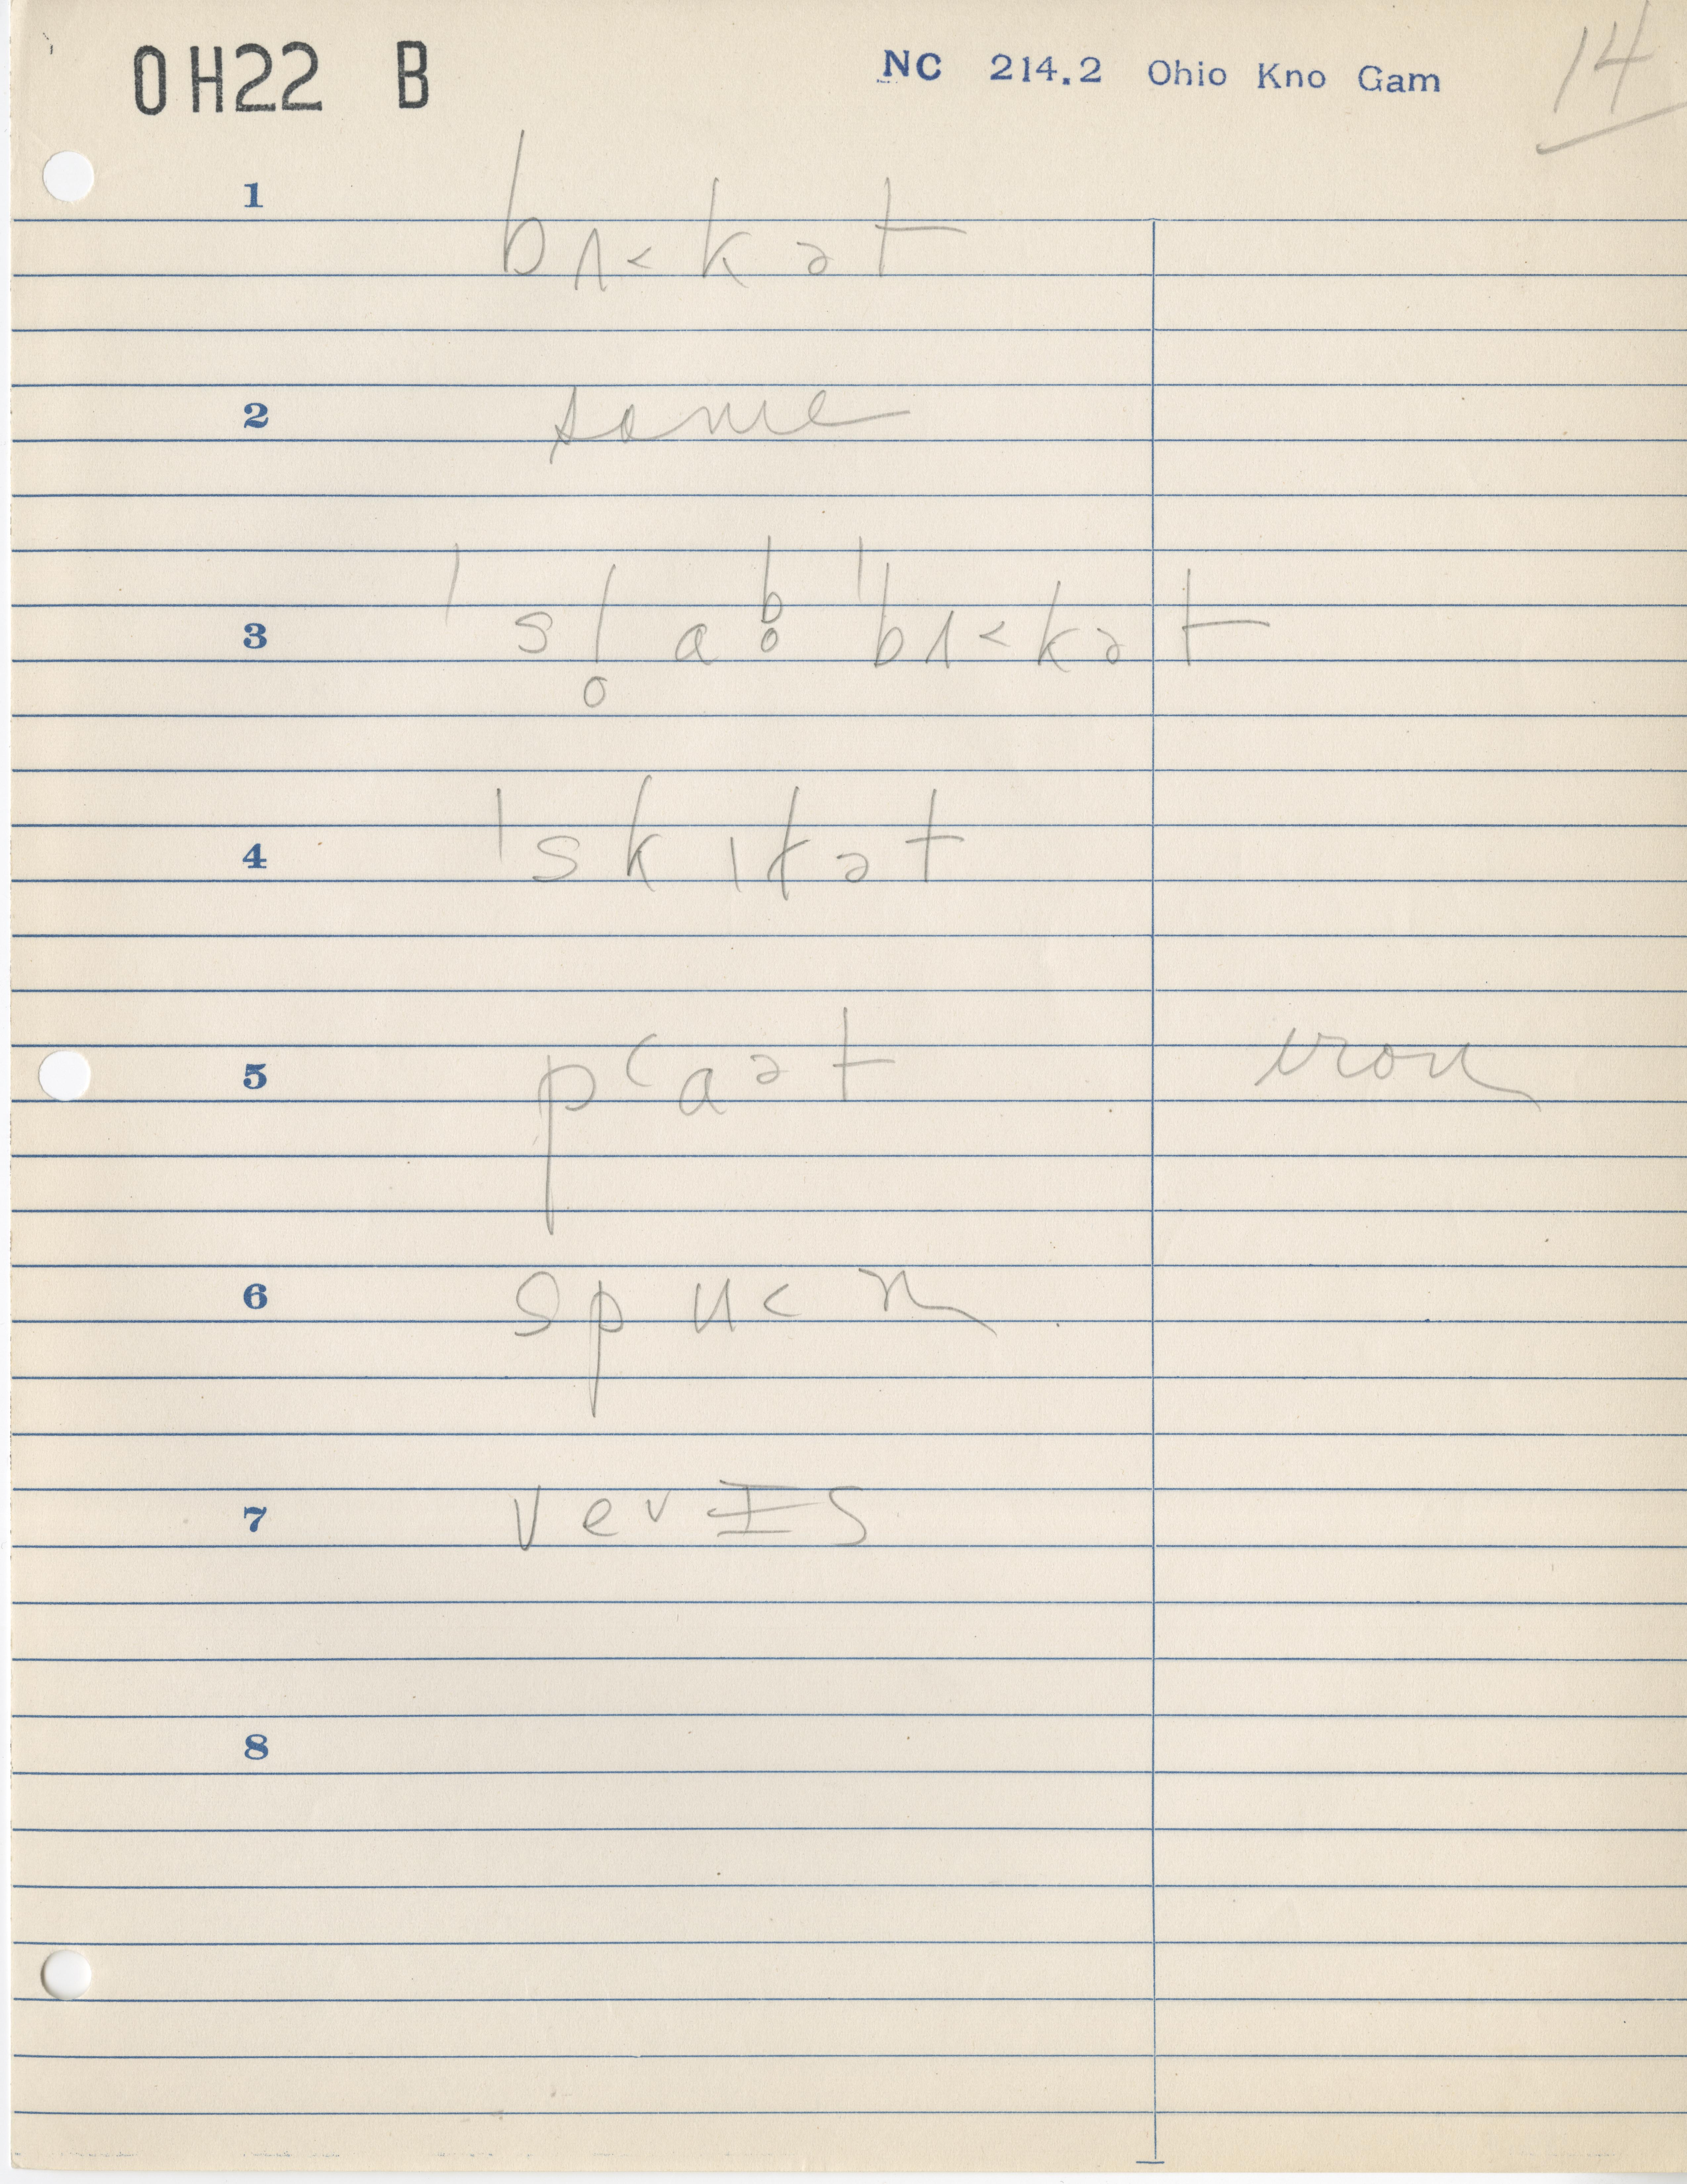 OH22 B
NC 214.2 Ohio Kno Gam
14
1 bʌ˂kət
2 same
3 ˈsl̥ab̥ ˈbʌ˂kət
4 ˈskɪɫət
5 pʻaət iron
6 spu˂n
7 vevɪs
8